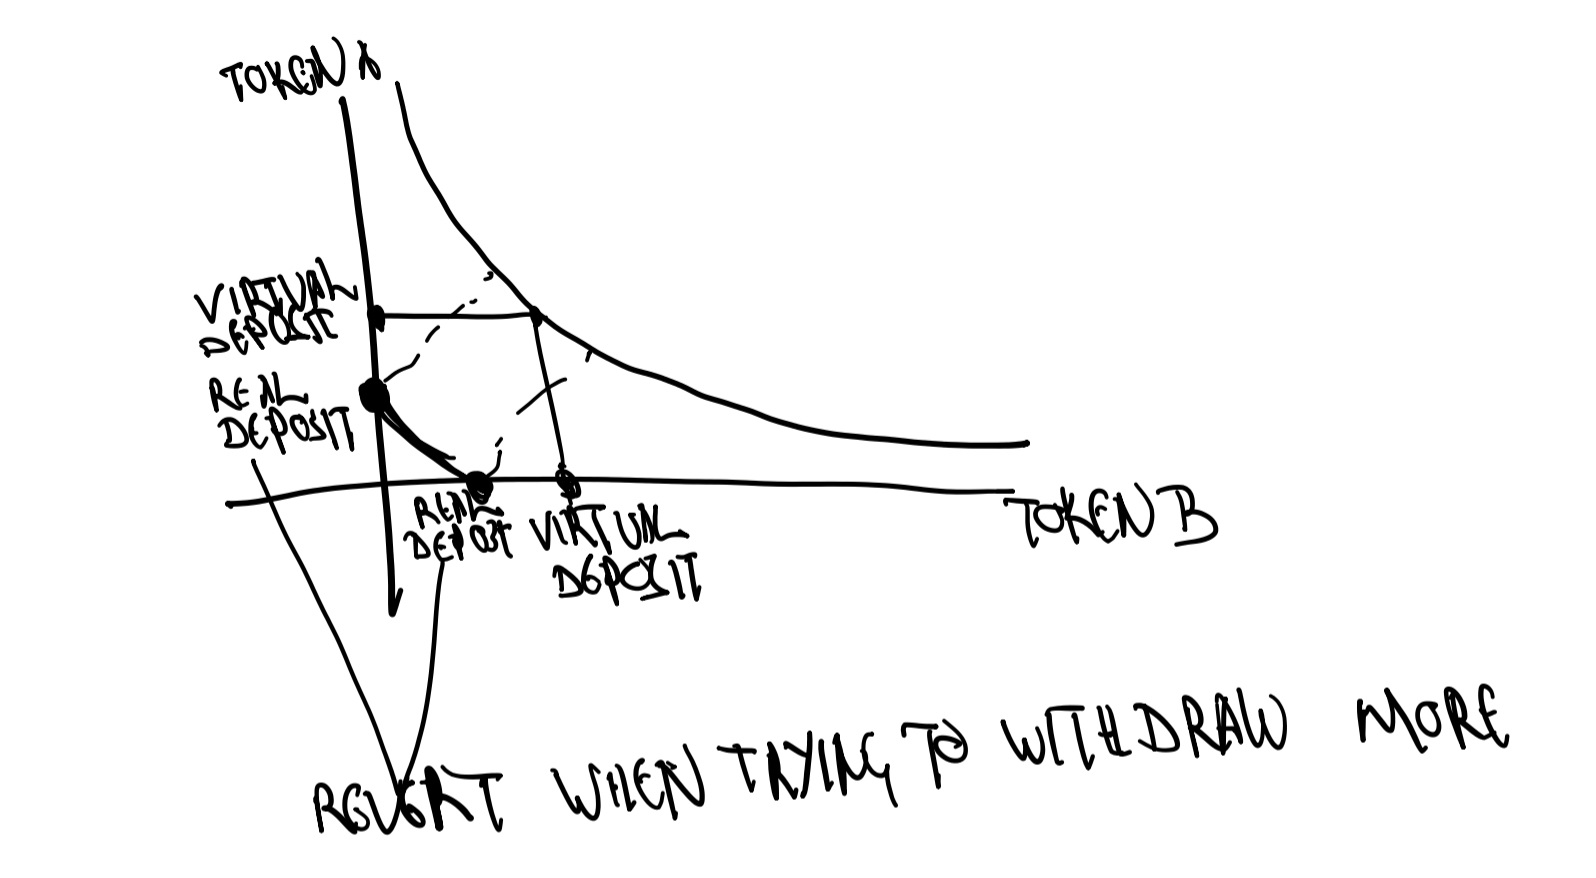 TOKEN A
VIRTUAL
DEPOSIT
REAL
DEPOSIT
REAL
DEPOSIT
VIRTUAL
DEPOSIT
TOKEN B
REVERT WHEN TRYING TO WITHDRAW MORE